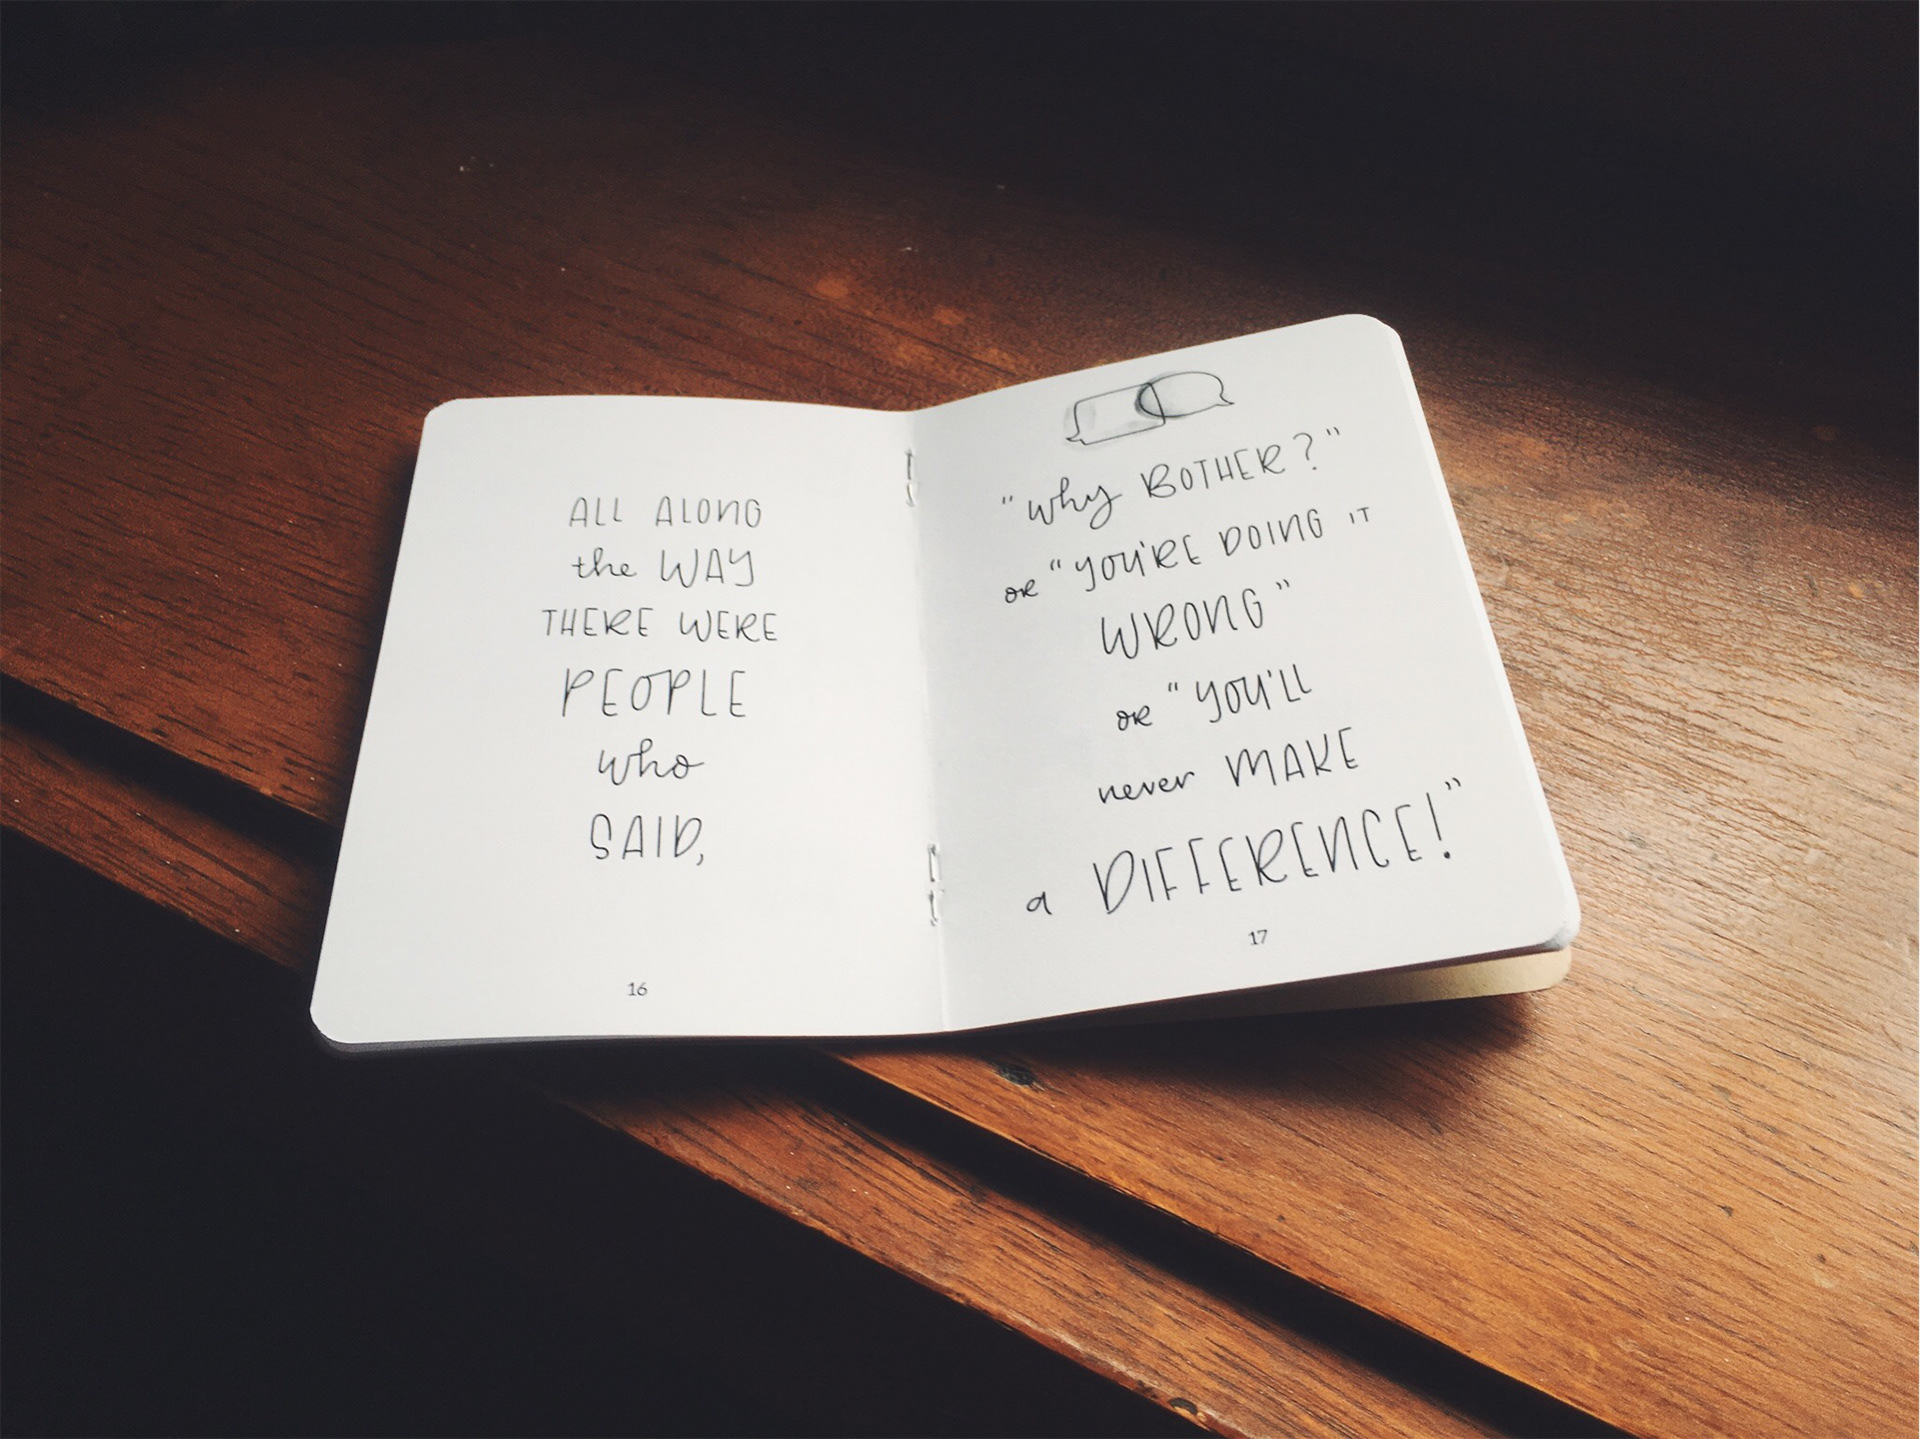 ALL ALONG
the WAY
THERE WERE
PEOPLE
who
SAID,
16
"why BOTHER?"
or "YOU'RE DOING IT
WRONG"
or "YOU'LL
never MAKE
a DIFFERENCE!"
17